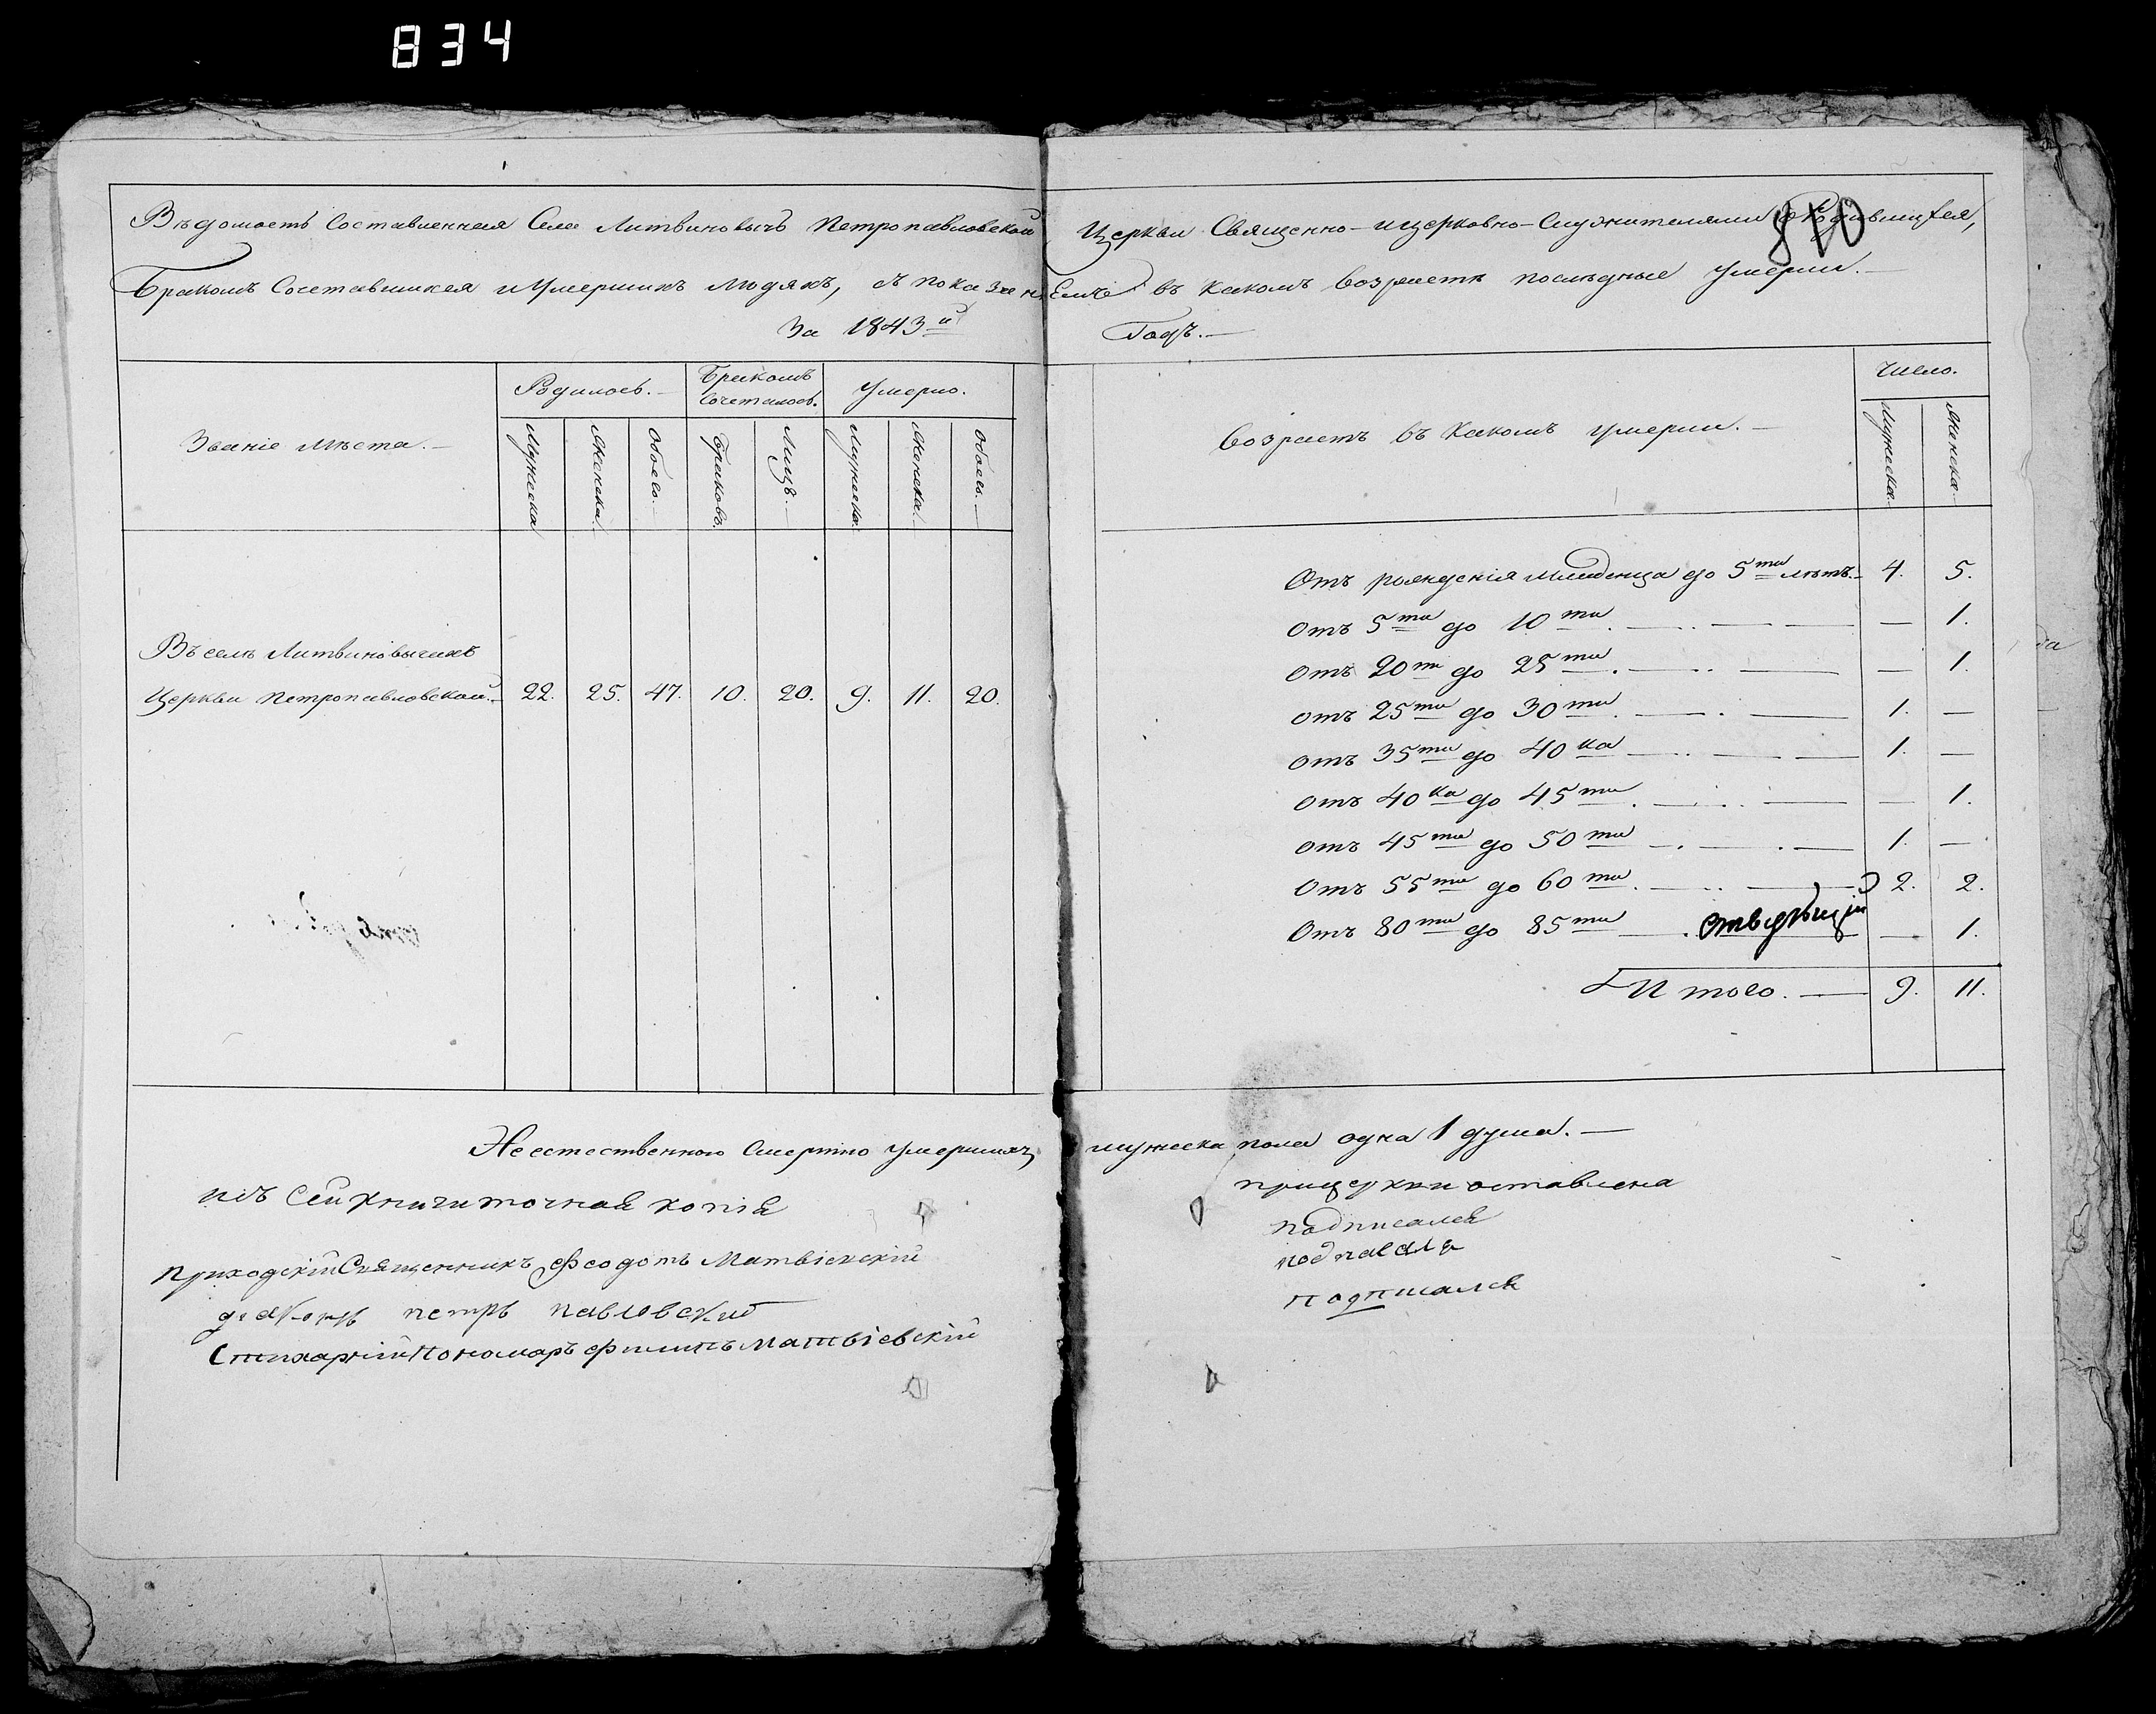 834
840
Вѣдомость Составленная Села Литвиновычъ Петропавловской Церкви Священно-ицерковно-Служителями о Родившихся,
Бракомъ Сочетавшихся и Умершихъ людяхъ, съ показаніемъ въ какомъ возрастѣ послѣдные умерли.—
За 1843й Годъ.—
Званіе Мѣста.—
Родилось.—
Бракомъ Сочеталось.
Умерло.
Мужеска
Женска
Обоего.—
Браковъ.
Лицъ.—
Мужеска
Женска
Обоего.—
Возрастъ въ Какомъ умерли.—
Число.
Мужеска.
Женска.
Въ селѣ Литвиновычахъ
Церкви Петропавловской.— 22. 25. 47. 10. 20. 9. 11. 20.
Отъ рожденія младенца до 5ти лѣтъ.— 4. 5.
Отъ 5ти до 10ти. — 1.
Отъ 20ти до 25ти. — 1.
Отъ 25ти до 30ти. 1. —
Отъ 35ти до 40ка 1. —
Отъ 40ка до 45ти. — 1.
Отъ 45ти до 50ти 1. —
Отъ 55ти до 60ти. 2. 2.
Отъ 80ти до 85ти — 1.
Итого.— 9. 11.
Неестественною Смертію умершихъ мужеска пола одна 1 душа.—
Изъ Сей книги точная копія прицеркви оставлена
Приходскій Священникъ Феодотъ Матвіевскій подписался
діаконъ петръ павловский подписался
Стихарній Пономаръ филипъ матвіевскій подписался